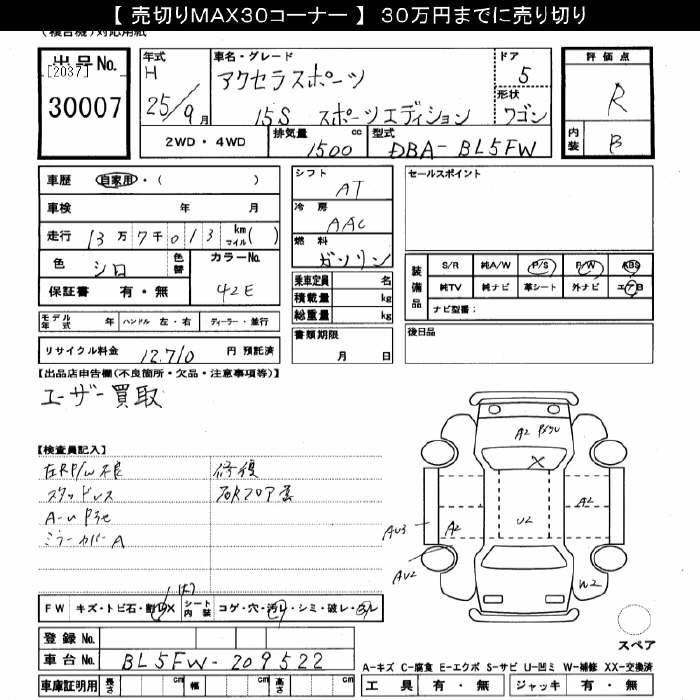 【 売切りMAX30コーナー 】 30万円までに売り切り
(複合機)対応用紙
出品No.
[2037]
30007
年式
H
25/9月
車名・グレード
アクセラスポーツ
15S スポーツエディション
ドア
5
形状
ワゴン
2WD・4WD
排気量
1500 cc
型式
DBA-BL5FW
評価点
R
内装
B
車歴 自家用・( )
車検 年 月
走行 13万7千013 km マイル( )
色 シロ 色替
カラーNo.
42E
保証書 有・無
モデル年式 年 ハンドル 左・右 ディーラー・並行
リサイクル料金 12.710 円 預託済
シフト
AT
冷房
AAC
燃料
ガソリン
乗車定員 名
積載量 kg
総重量 kg
書類期限
月 日
セールスポイント
装備品
S/R 純A/W P/S P/W ABS
純TV 純ナビ 革シート 外ナビ エアB
ナビ型番:
後日品
【出品店申告欄(不良箇所・欠品・注意事項等)】
ユーザー買取
【検査員記入】
左RP/W不良
スタッドレス
A-U P3ヒ
ミラーカバーA
修復
A2
X
U2
A2
A2
AU3
AU2
W2
FW キズ・トビ石・割レX
シート内装 コゲ・穴・汚レ・シミ・破レ・スレ
登録No.
車台No. BL5FW-209522
車庫証明用 長さ cm 幅 cm 高さ cm
スペア
A-キズ C-腐食 E-エクボ S-サビ U-凹ミ W-補修 XX-交換済
工具 有・無 ジャッキ 有・無